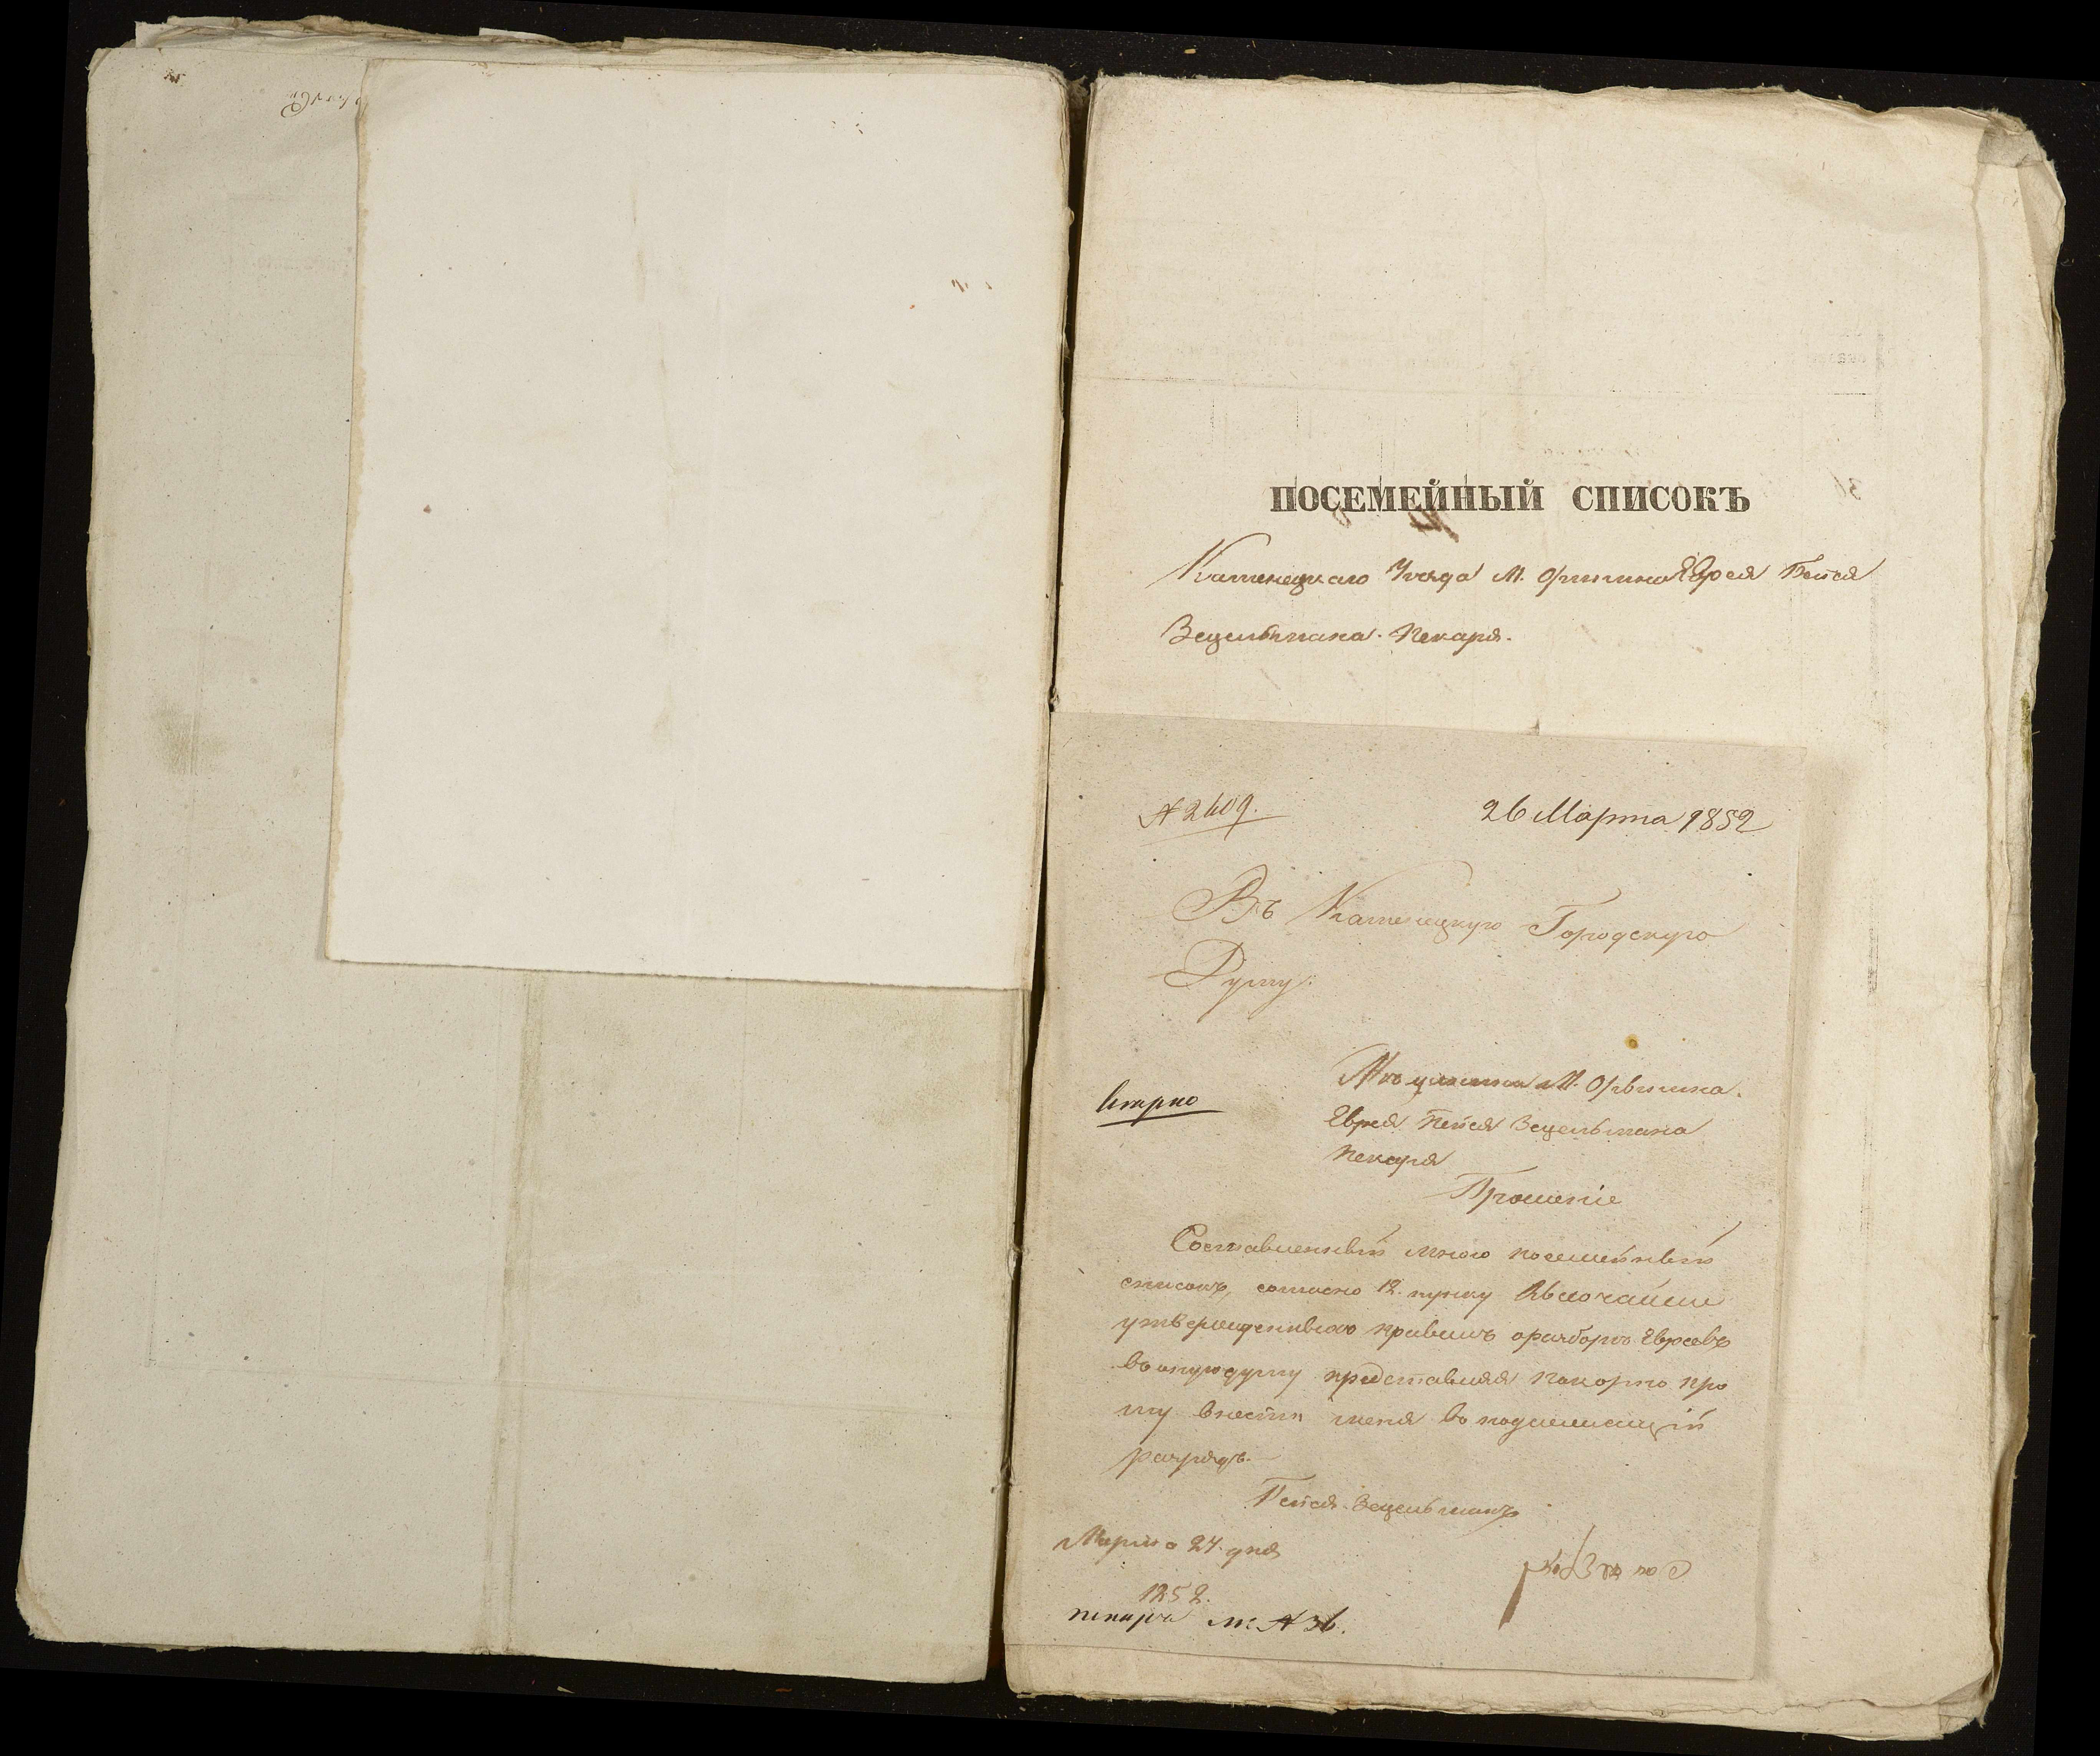 ПОСЕМЕЙНЫЙ СПИСОКЪ
Каменецкаго Уезда М. Орынина Еврея Пейся
Зецельмана Пекаря.
№ 2609.
26 Марта 1852
Въ Каменецкую Городскую
Думу.
М. Орынина
Еврея Пейся Зецельмана
Пекаря
Прошеніе
Составленный мною посемейный
списокъ, согласно 12. пункту Высочайше
утвержденныхъ правилъ о разборе Евреевъ
въ оную думу представляя покорно про
шу внести меня въ подлежащій
разрядъ.
Пейся Зецельманъ
Марта 24 дня
1852.
пекарь № 36.